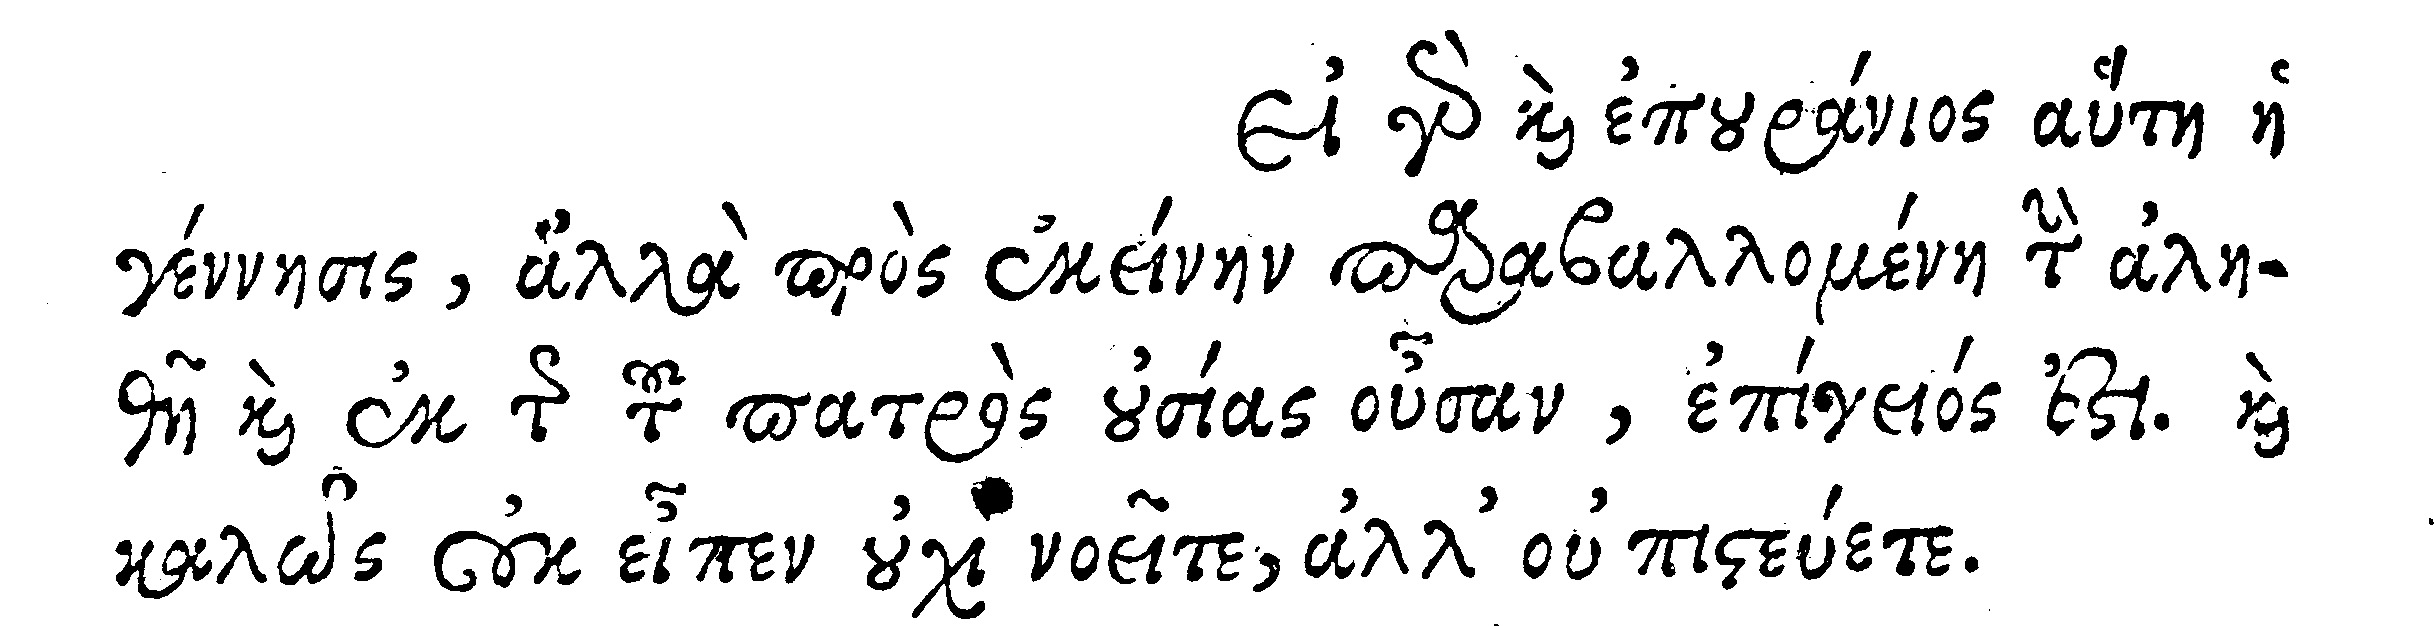 εἰ γὸ καὶ ἐπουράνιος αὕτη ἡ
γέννησις, ἄλλὰ πρὸς ἐκείνην παραβαλλομένη τὴν ἀλη-
θῆ καὶ ἐκ τῆς τοῦ πατρὸς οὐσίας οὖσαν, ἐπίγειός ἐστι. καὶ
καλῶς οὐκ εἶπεν οὐχὶ νοεῖτε, ἀλλ' οὐ πιστεύετε.